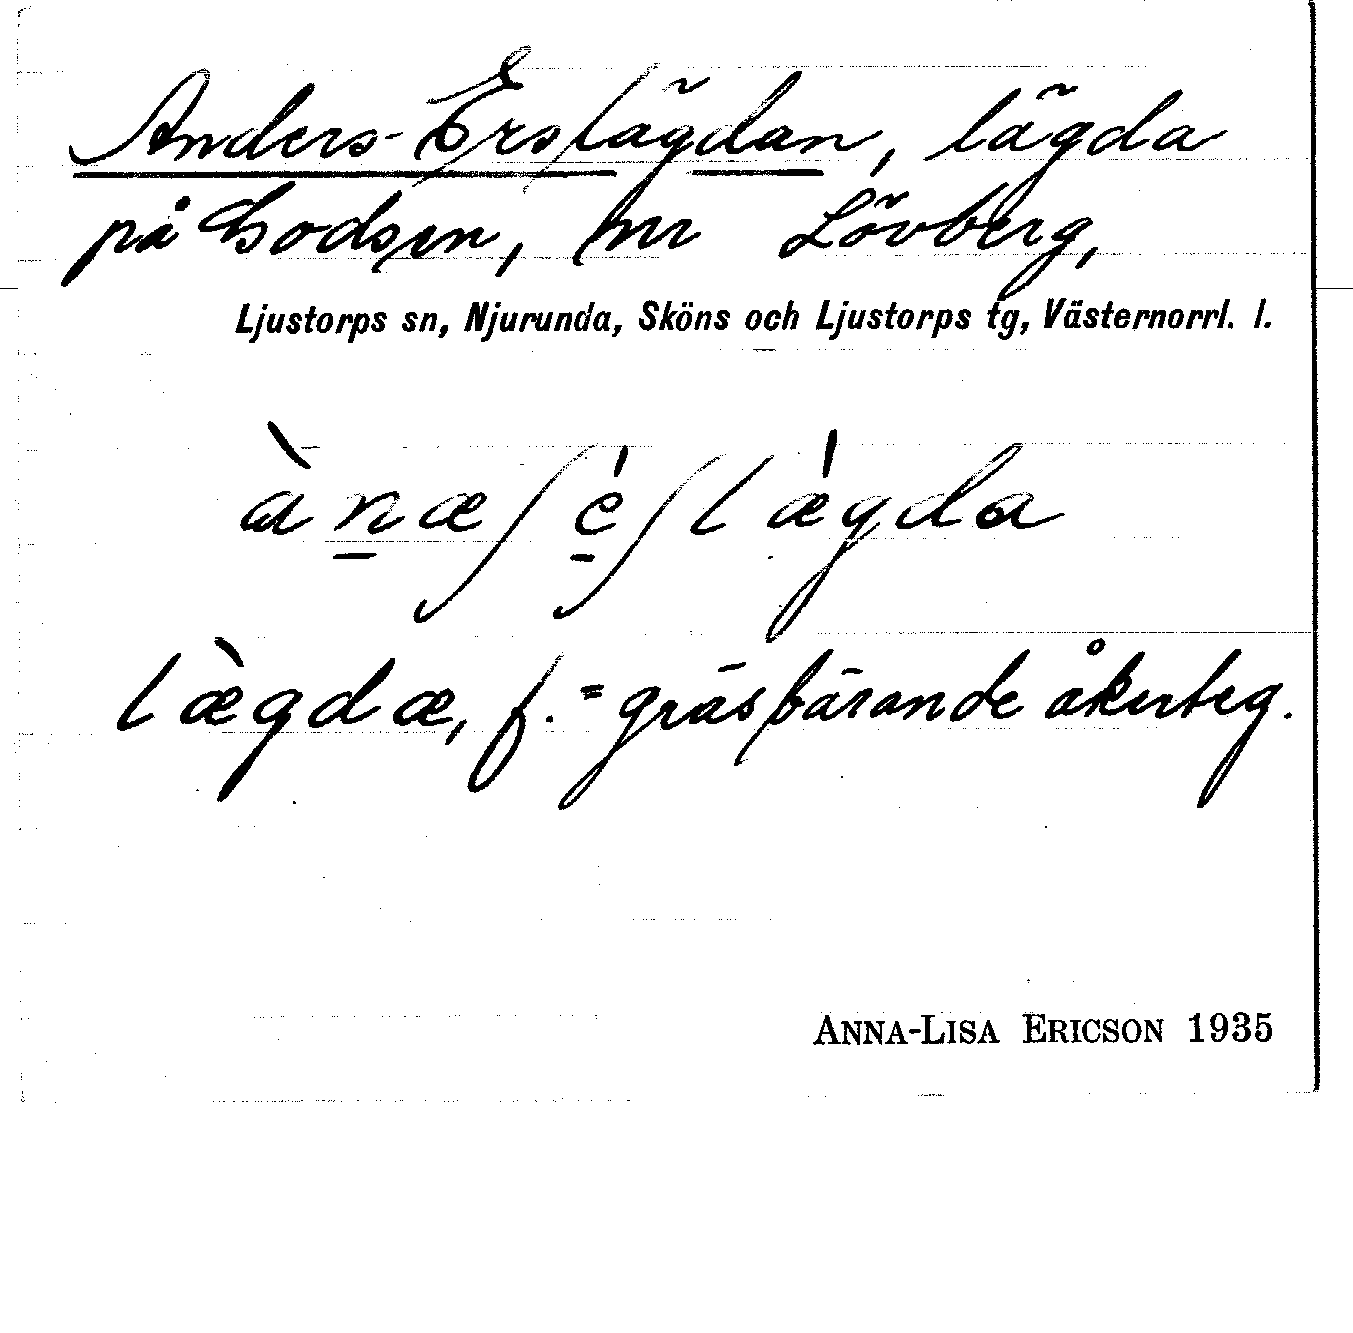 Anders-Erslägdan, lägda
på bodsen, nr Lövberg,
Ljustorps sn, Njurunda, Sköns och Ljustorps tg, Västernorrl. l.
ànæʃ éʃlægda
lægdæ, f. = gräsbärande åkerteg.
ANNA-LISA ERICSON 1935